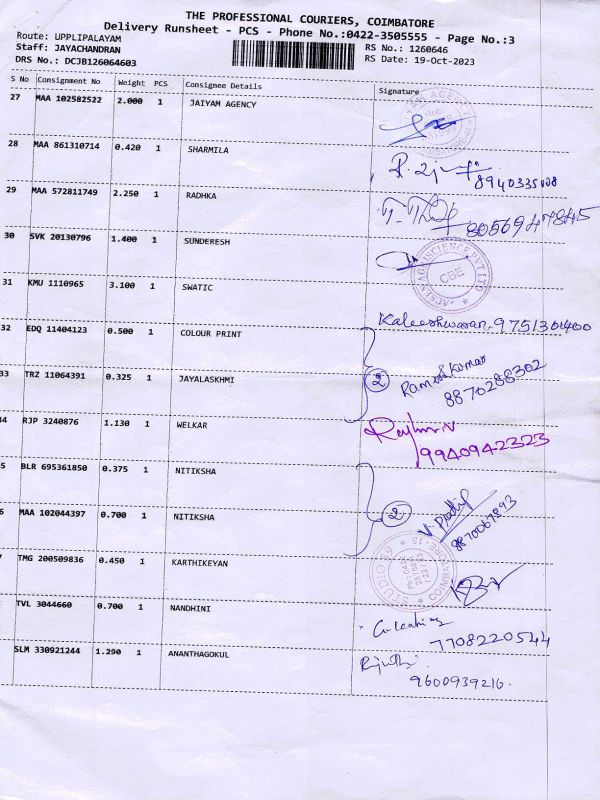 THE PROFESSIONAL COURIERS, COIMBATORE
Delivery Runsheet - PCS - Phone No.:0422-3505555 - Page No.:3
Route: UPPLIPALAYAM
RS No.: 1260646
Staff: JAYACHANDRAN
RS Date: 19-Oct-2023
DRS No.: DCJB126064603
S No Consignment No Weight PCS Consignee Details Signature
27 MAA 102582522 2.000 1 JAIYAM AGENCY
28 MAA 861310714 0.420 1 SHARMILA
8940335008
29 MAA 572811749 2.250 1 RADHKA
8056947845
30 SVK 20130796 1.400 1 SUNDERESH
CBE
31 KMU 1110965 3.100 1 SWATIC
Kaleeshwaran-9751301400
32 EDQ 11404123 0.500 1 COLOUR PRINT
2 Ramesh Kumar
33 TRZ 11064391 0.325 1 JAYALASKHMI
8870288302
34 RJP 3240876 1.130 1 WELKAR
9940942323
5 BLR 695361850 0.375 1 NITIKSHA
2
6 MAA 102044397 0.700 1 NITIKSHA
8870067893
7 TMG 200509836 0.450 1 KARTHIKEYAN
TVL 3044660 0.700 1 NANDHINI
7708220544
SLM 330921244 1.290 1 ANANTHAGOKUL
9600939216